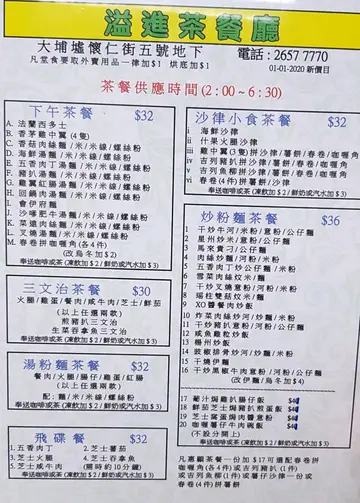 溢進茶餐廳
大埔墟懷仁街五號地下
電話:2657 7770
凡堂食要取外賣用品一律加$1 烘底加$1
01-01-2020 新價目
茶餐供應時間(2:00~6:30)
下午茶餐 $32
A. 法蘭西多士
B. 香茅雞中翼(4隻)
C. 香菇肉絲麵/米/米線/螺絲粉
D. 海鮮湯麵/米/米線/螺絲粉
E. 五香肉丁湯麵/米/米線/螺絲粉
F. 豬扒湯麵/米/米線/螺絲粉
G. 雞翼紅腸湯麵/米/米線/螺絲粉
H. 回鍋肉湯麵/米/米線/螺絲粉
I. 會伊府麵
J. 沙嗲肥牛湯麵/米/米線/螺絲粉
K. 菜遠肉絲麵/米/米線/螺絲粉
L. 叉燒湯麵/米/米線/螺絲粉
M. 春卷拼咖喱角(各4件)
(改烏冬加$2)
奉送咖啡或茶(凍飲加$2|鮮奶或汽水加$3)
三文治茶餐 $30
火腿/雞蛋/餐肉/咸牛肉/芝士/鮮茄
(以上任選兩款)
煎豬扒三文治
生菜吞拿魚三文治
奉送咖啡或茶(凍飲加$2|鮮奶或汽水加$3)
湯粉麵茶餐 $32
餐肉/火腿/腸仔/雞蛋/紅腸
(以上任選兩款)
配:麵/米/米線/螺絲粉
奉送咖啡或茶(凍飲加$2|鮮奶或汽水加$3)
飛碟餐 $32
1.五香肉丁 2.芝士蕃茄
3.芝士火腿 4.芝士吞拿魚
5.芝士咸牛肉 (需時約10分鐘)
奉送咖啡或茶(凍飲加$2|鮮奶或汽水加$3)
沙律小食茶餐 $32
i 海鮮沙律
ii 什果火腿沙律
iii 雞中翼(3隻)拼沙律/薯餅/春卷/咖喱角
iv 吉列豬扒拼沙律/薯餅/春卷/咖喱角
v 吉列魚柳拼沙律/薯餅/春卷/咖喱角
vi 春卷(4件)拼薯餅/沙律
奉送咖啡或茶(凍飲加$2|鮮奶或汽水加$3)
炒粉麵茶餐 $36
1 干炒牛河/米粉/意粉/公仔麵
2 星州炒米/意粉/公仔麵
3 馬來貴刁/公仔麵
4 肉絲炒麵/河粉/米粉
5 五香肉丁炒公仔麵/米粉
6 雪菜肉絲炆米/麵
7 干炒叉燒意粉/河粉/公仔麵
8 瑤柱雙菇炆米/麵
9 XO醬餐肉炒飯
10 炸菜肉絲炒河/米粉/公仔麵
11 干炒豬扒意粉/河粉/公仔麵
12 咸魚雞粒炒飯
13 楊州炒飯
14 豉椒排骨炒河/炒麵/米粉
15 干燒伊麵
16 干炒黑椒牛肉意粉/河粉/公仔麵
(改伊麵/烏冬加$4)
17 葡汁焗雞扒腸仔飯
18 鮮茄芝士焗豬扒煎蛋飯
19 芝士窩蛋焗肉醬意粉
20 咖喱薯仔牛肉碗飯
(不設分開上)
奉送咖啡或茶(凍飲加$2|鮮奶或汽水加$3)
凡惠顧茶餐一份加$17可選配春卷拼
咖喱角(各4件)或吉列豬扒(1件)
或吉列魚柳(1件)或薯仔沙律一份或
春卷(4件)拼薯餅